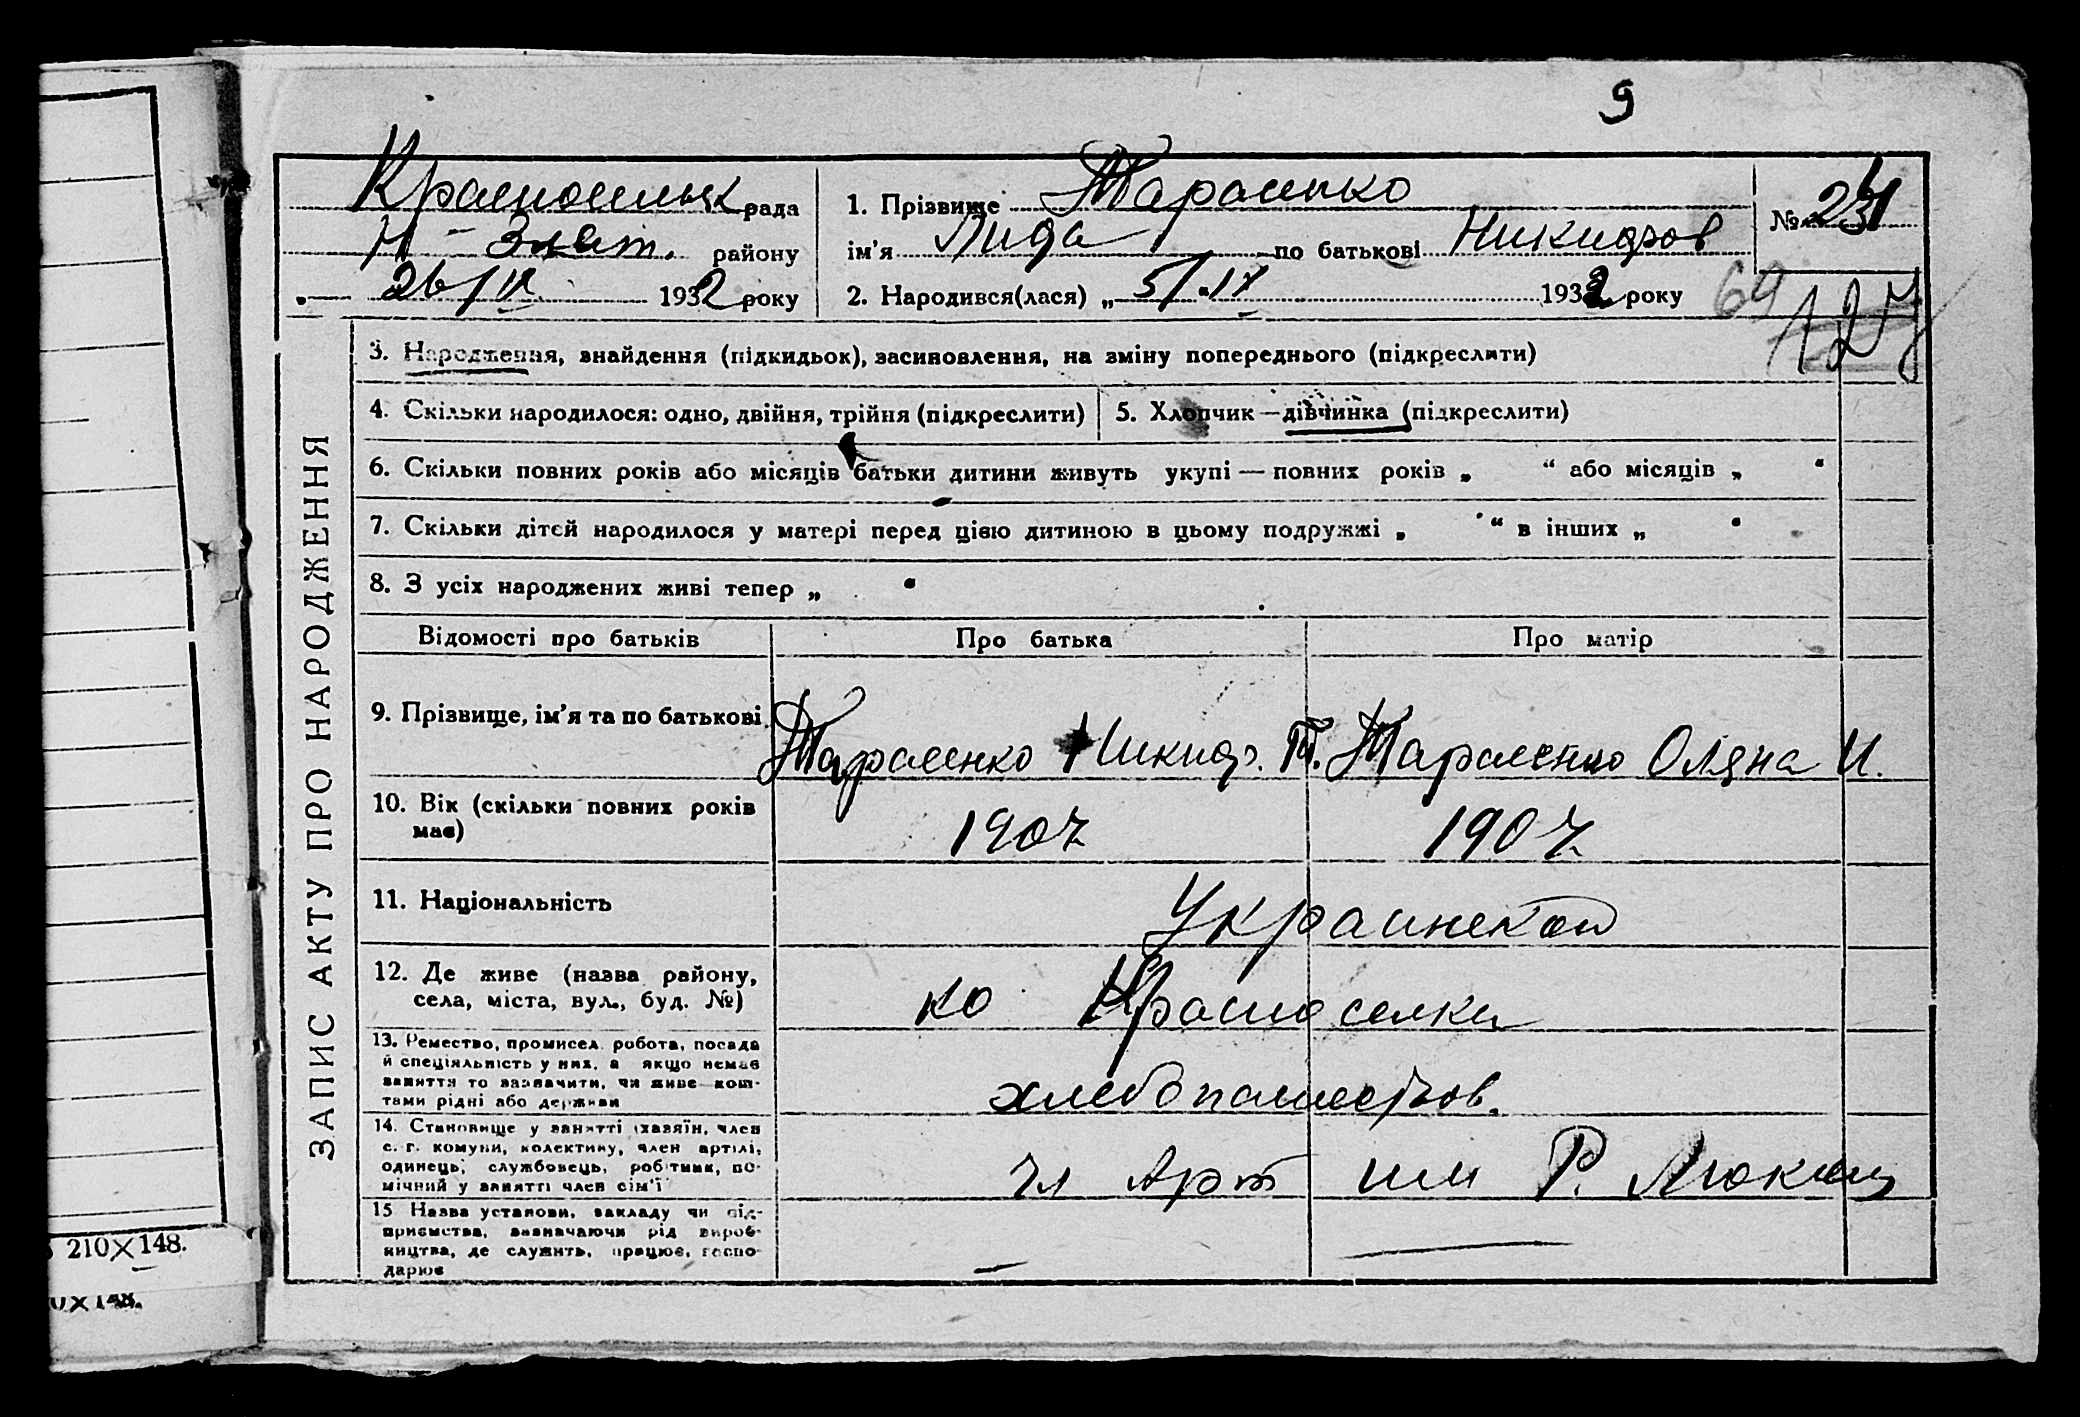 9
Красносельск рада
Н-Злат. району
26/IV 1932 року
1. Прізвище Тарасенко
ім'я Лида по батькові Никифров
2. Народився(лася) „ 5/IV 1932 року
№ 231
69
127
ЗАПИС АКТУ ПРО НАРОДЖЕННЯ
3. Народження, знайдення (підкидьок), засиновлення, на зміну попереднього (підкреслити)
4. Скільки народилося: одно, двійня, трійня (підкреслити)
5. Хлопчик — дівчинка (підкреслити)
6. Скільки повних років або місяців батьки дитини живуть укупі — повних років „ “ або місяців „ “
7. Скільки дітей народилося у матері перед цією дитиною в цьому подружжі „ “ в інших „ “
8. З усіх народжених живі тепер „ “
Відомості про батьків Про батька Про матір
9. Прізвище, ім'я та по батькові Тарасенко Никифр. Т. Тарасенко Оляна И.
10. Вік (скільки повних років має) 1907 1907
11. Національність Украинской
12. Де живе (назва району, села, міста, вул., буд. №)
ко Красноселки
13. Ремество, промисел, робота, посада й спеціяльність у них, а якщо немає заняття то зазначити, чи живе коштами рідні або держави
хлебопашеством.
14. Становище у занятті (хазяїн, член с.-г. комуни, колективу, член артілі, одинець, службовець, робітник, помічний у занятті член сім'ї
чл Арт им Р. Люксенб
15 Назва установи, закладу чи підприємства, визначаючи рід виробництва, де служить, працює, господарює
210×148.
0×148.